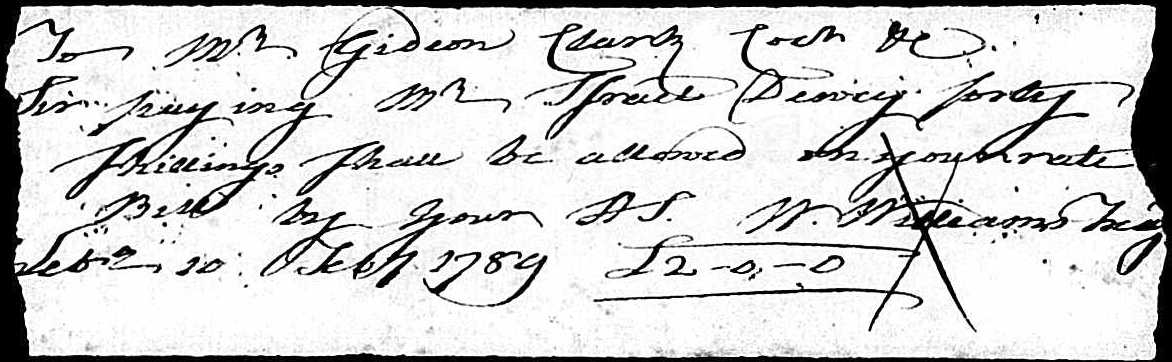 To Mr Gideon Clark Coll &c
Sir paying Mr Israel Dewey forty
shillings shall be allowed on your rate
Bill by your H S. W. Williams Treasr
Lebn 10 Feby 1789 £2-0-0